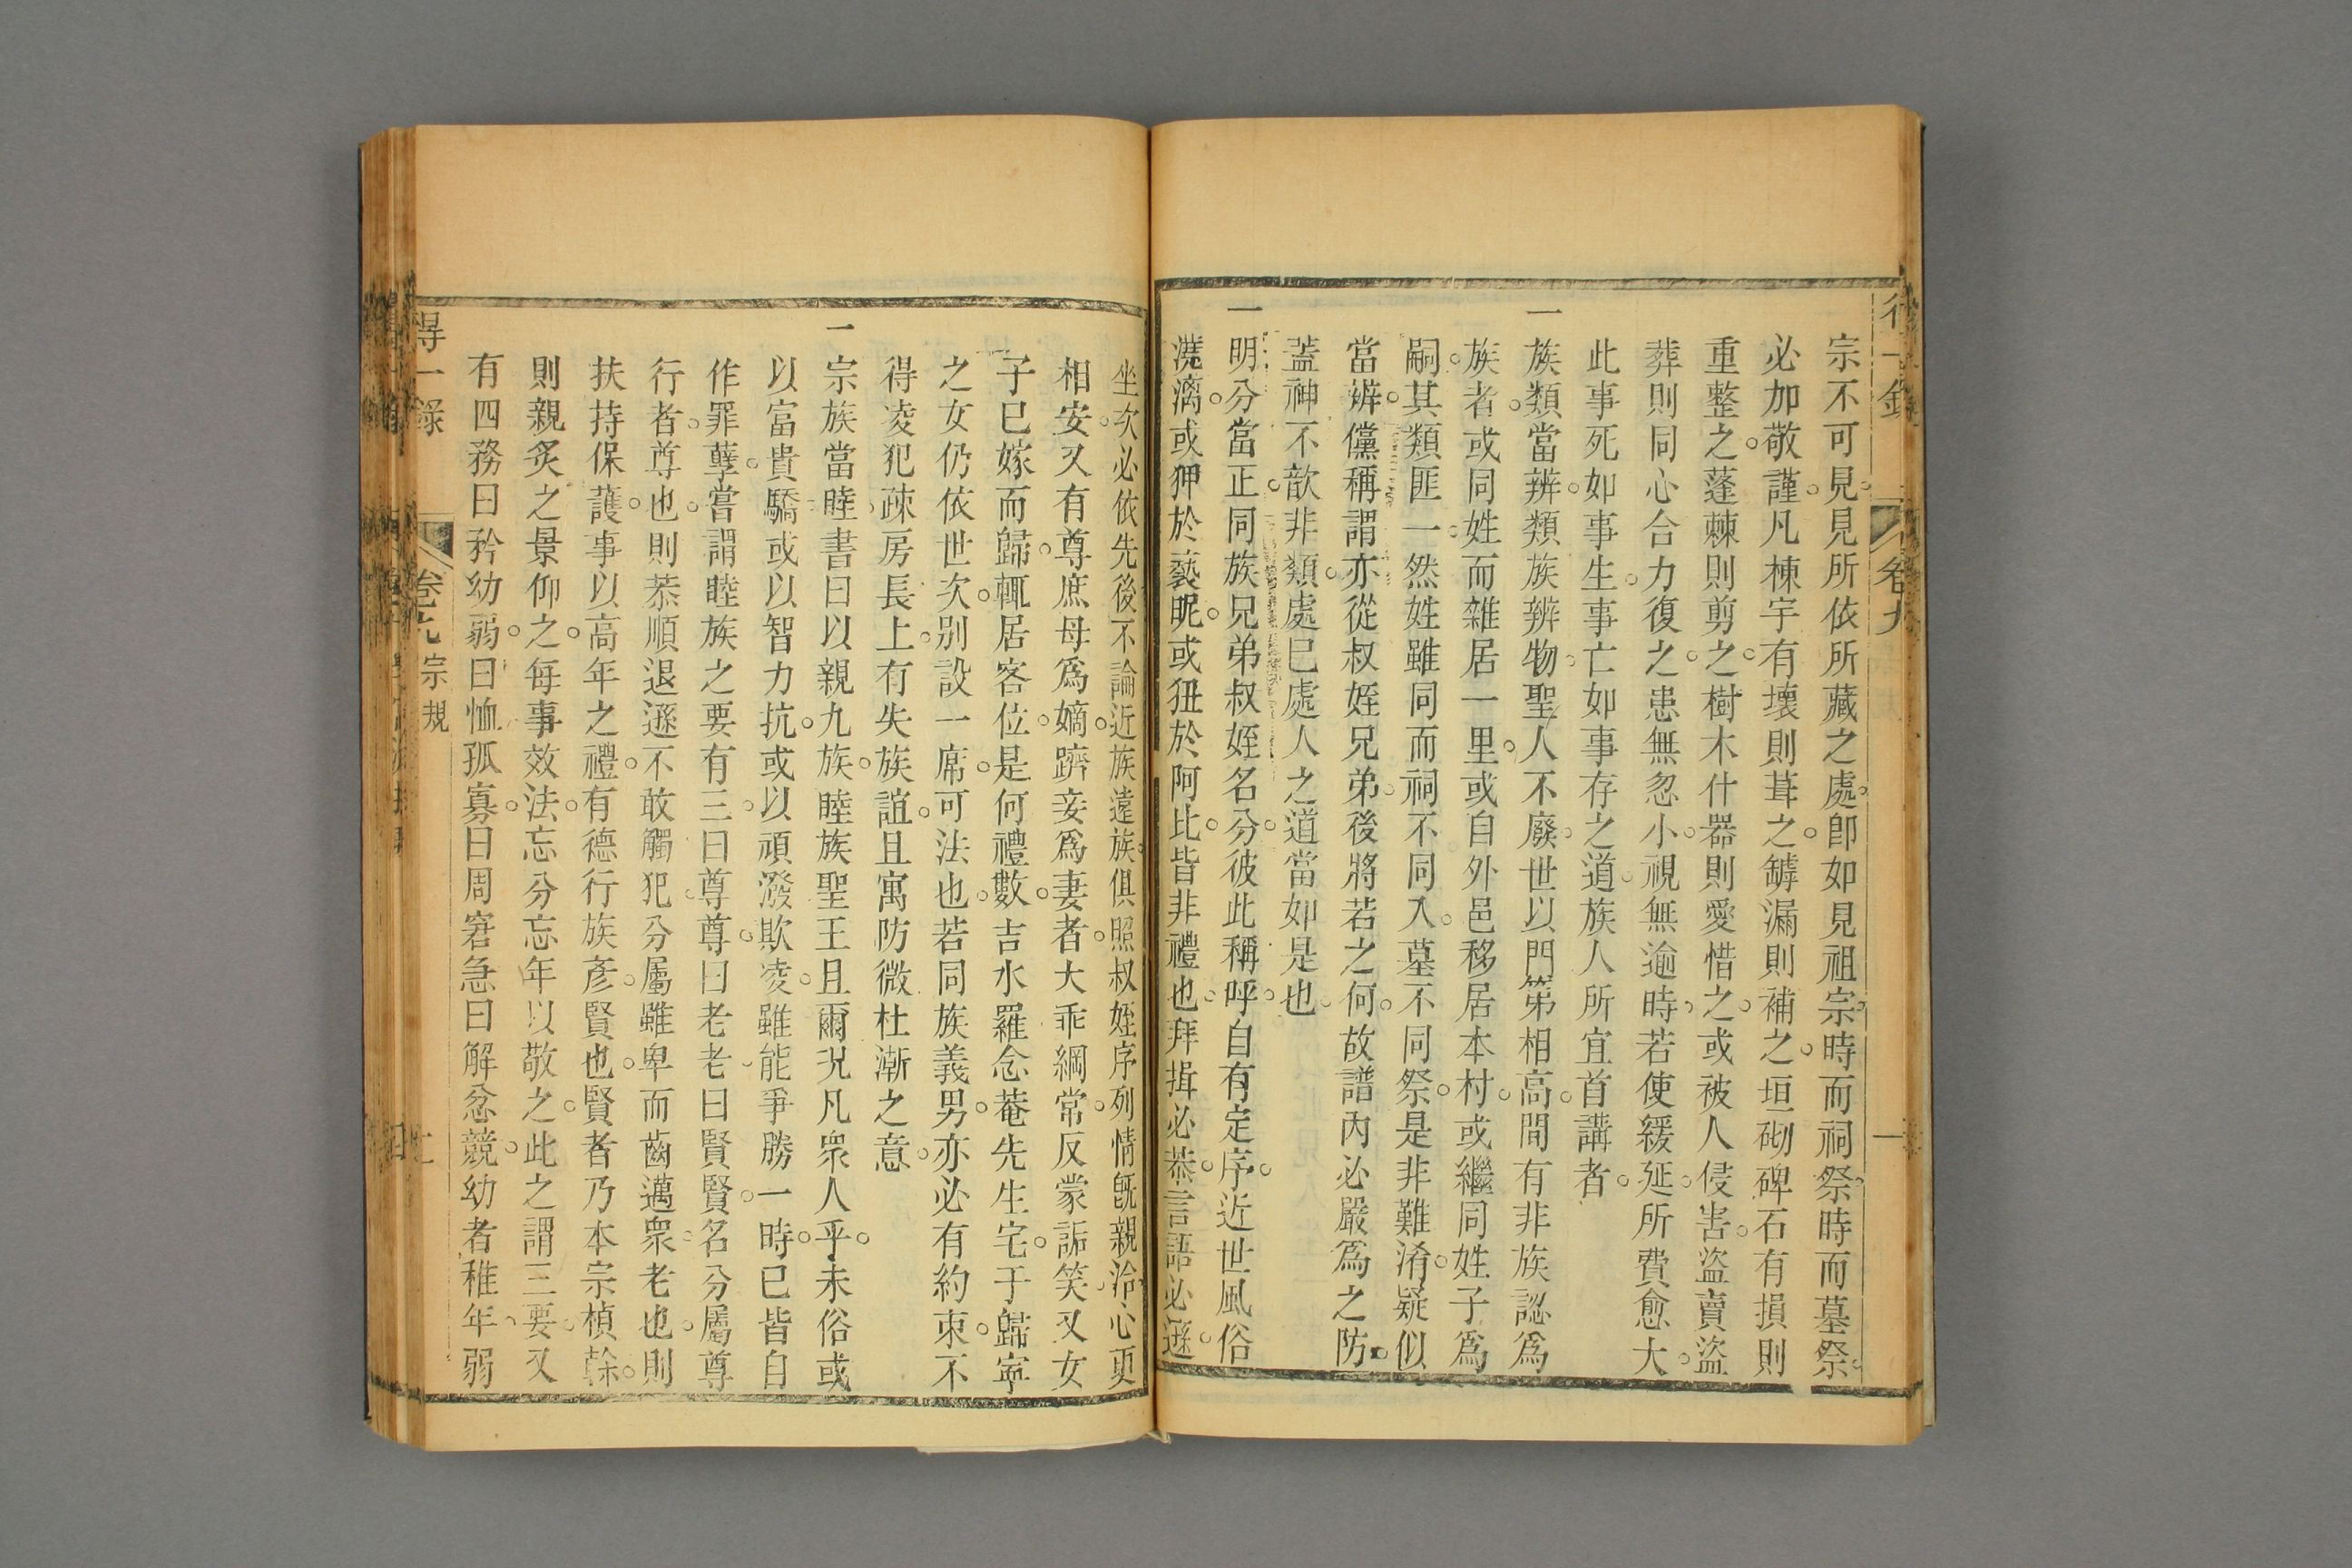 卷九
宗不可見見所依所藏之處卽如見祖宗時而祠祭時而墓祭
必加敬謹凡棟宇有壞則葺之罅漏則補之垣砌碑石有損則
重整之蓬棘則剪之樹木什器則愛惜之或被人侵害盜賣盜
葬則同心合力復之患無忽小視無逾時若使緩延所費愈大
此事死如事生事亡如事存之道族人所宜首講者
一族類當辨類族辨物聖人不廢世以門第相高間有非族認爲
族者或同姓而雜居一里或自外邑移居本村或繼同姓子爲
嗣其類匪一然姓雖同而祠不同入墓不同祭是非難淆疑似
當辨儻稱謂亦從叔姪兄弟後將若之何故譜內必嚴爲之防
蓋神不歆非類處已處人之道當如是也
一明分當正同族兄弟叔姪名分彼此稱呼自有定序近世風俗
澆漓或狎於褻昵或狃於阿比皆非禮也拜揖必恭言語必遜
坐次必依先後不論近族遠族俱照叔姪序列情旣親洽心更
相安又有尊庶母爲嫡躋妾爲妻者大乖綱常反蒙詬笑又女
子已嫁而歸輒居客位是何禮數吉水羅念菴先生宅于歸寧
之女仍依世次別設一席可法也若同族義男亦必有約束不
得凌犯疎房長上有失族誼且寓防微杜漸之意
一宗族當睦書曰以親九族睦族聖王且爾況凡衆人乎末俗或
以富貴驕或以智力抗或以頑潑欺凌雖能爭勝一時已皆自
作罪孽嘗謂睦族之要有三曰尊尊曰老老曰賢賢名分屬尊
行者尊也則恭順退遜不敢觸犯分屬雖卑而齒邁衆老也則
扶持保護事以高年之禮有德行族彥賢也賢者乃本宗楨榦
則親炙之景仰之每事效法忘分忘年以敬之此之謂三要又
有四務曰矜幼弱曰恤孤寡曰周窘急曰解忿競幼者稚年弱
得一錄 卷九 宗規